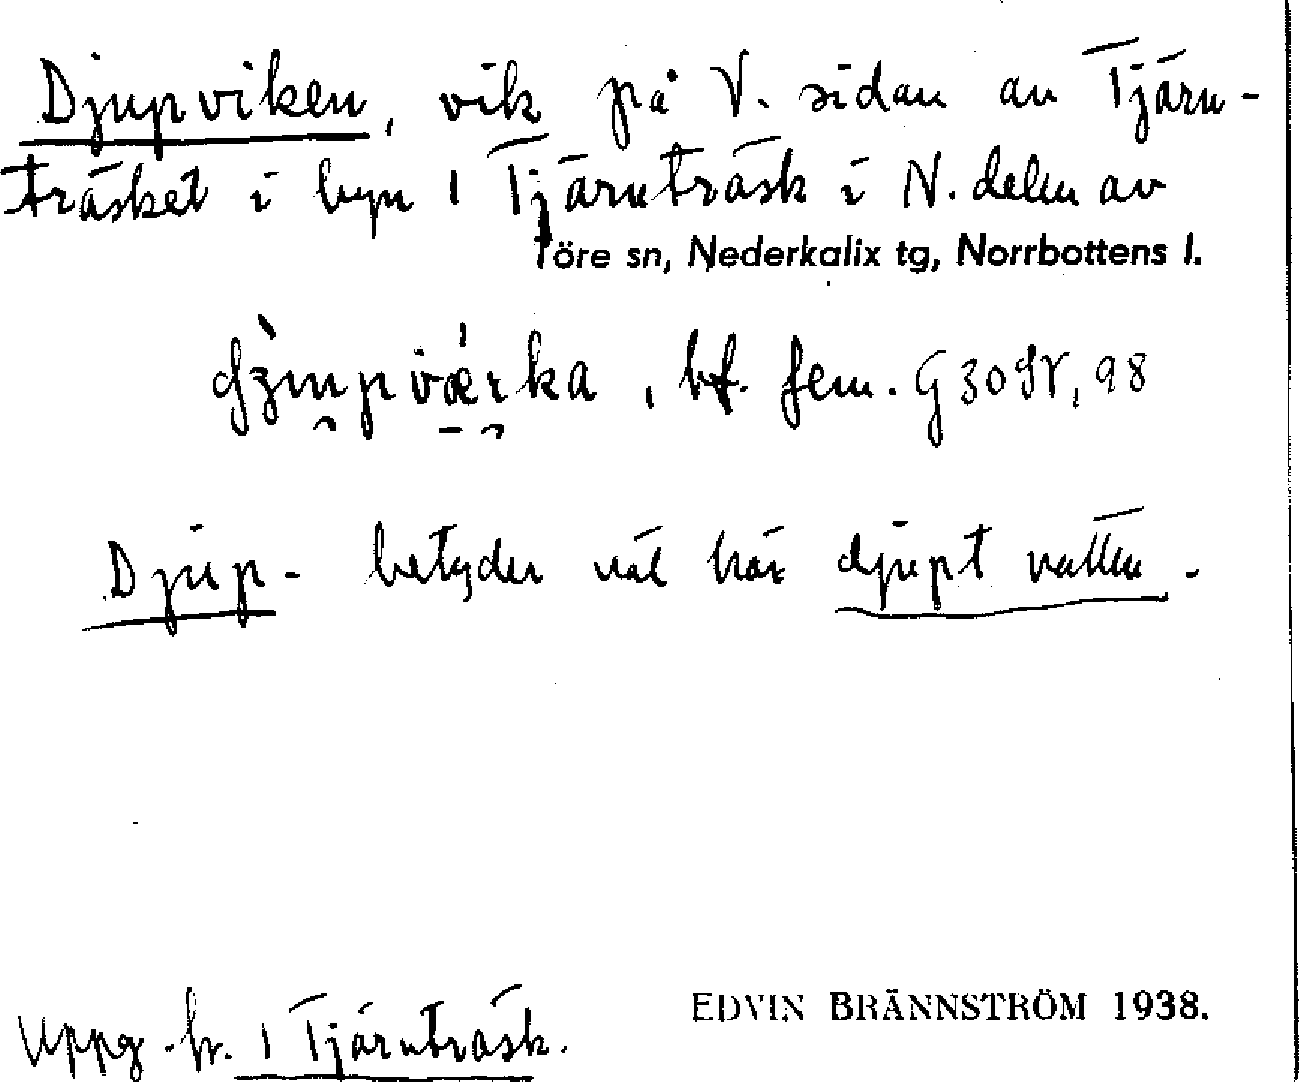 Djupviken, vik på V. sidan av Tjärn-
träsket i byn 1 Tjärnträsk i N. delen av
Töre sn, Nederkalix tg, Norrbottens l.
bf. fem. G 30 SV, 98
Djup- betyder väl här djupt vatten.
Uppg. fr. 1 Tjärnträsk.
EDVIN BRÄNNSTRÖM 1938.